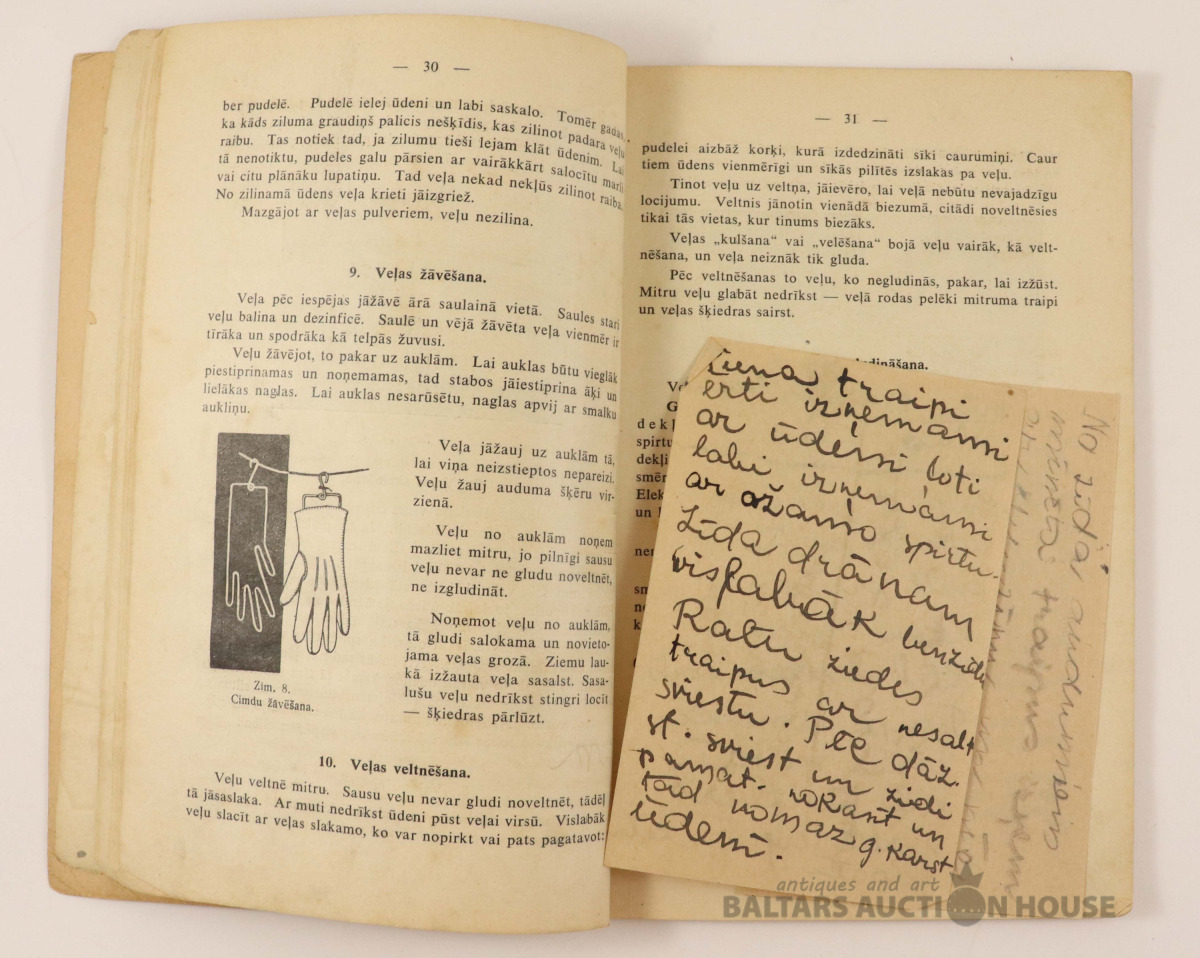 — 30 —
ber pudelē. Pudelē ielej ūdeni un labi saskalo. Tomēr gadās,
ka kāds ziluma graudiņš palicis nešķīdis, kas zilinot padara veļu
raibu. Tas notiek tad, ja zilumu tieši lejam klāt ūdenim. Lai
tā nenotiktu, pudeles galu pārsien ar vairākkārt salocītu marli
vai citu plānāku lupatiņu. Tad veļa nekad nekļūs zilinot raiba.
No zilinamā ūdens veļa krieti jāizgriež.
Mazgājot ar veļas pulveriem, veļu nezilina.
9. Veļas žāvēšana.
Veļa pēc iespējas jāžāvē ārā saulainā vietā. Saules stari
veļu balina un dezinficē. Saulē un vējā žāvēta veļa vienmēr ir
tīrāka un spodrāka kā telpās žuvusi.
Veļu žāvējot, to pakar uz auklām. Lai auklas būtu vieglāk
piestiprinamas un noņemamas, tad stabos jāiestiprina āķi un
lielākas naglas. Lai auklas nesarūsētu, naglas apvij ar smalku
aukliņu.
Veļa jāžauj uz auklām tā,
lai viņa neizstieptos nepareizi.
Veļu žauj auduma šķēru vir-
zienā.
Veļu no auklām noņem
mazliet mitru, jo pilnīgi sausu
veļu nevar ne gludu noveltnēt,
ne izgludināt.
Noņemot veļu no auklām,
tā gludi salokama un novieto-
jama veļas grozā. Ziemu lau-
kā izžauta veļa sasalst. Sasa-
lušu veļu nedrīkst stingri locīt
— šķiedras pārlūzt.
Zīm. 8.
Cimdu žāvēšana.
10. Veļas veltnēšana.
Veļu veltnē mitru. Sausu veļu nevar gludi noveltnēt, tādēļ
tā jāsaslaka. Ar muti nedrīkst ūdeni pūst veļai virsū. Vislabāk
veļu slacīt ar veļas slakamo, ko var nopirkt vai pats pagatavot:
— 31 —
pudelei aizbāž korķi, kurā izdedzināti sīki caurumiņi. Caur
tiem ūdens vienmērīgi un sīkās pilītēs izslakas pa veļu.
Tinot veļu uz veltņa, jāievēro, lai veļā nebūtu nevajadzīgu
locijumu. Veltnis jānotin vienādā biezumā, citādi noveltnēsies
tikai tās vietas, kur tinums biezāks.
Veļas „kulšana“ vai „velēšana“ bojā veļu vairāk, kā velt-
nēšana, un veļa neiznāk tik gluda.
Pēc veltnēšanas to veļu, ko negludinās, pakar, lai izžūst.
Mitru veļu glabāt nedrīkst — veļā rodas pelēki mitruma traipi
un veļas šķiedras sairst.
traipi
erti izņemami
ar ūdeni ļoti
labi izņemami
ar ožamo spirtu.
Zīda drānam
vislabāk
Ratu ziedes
traipus ar nesalt
sviestu. Pēc dāž.
st. sviest un ziedi
pamat. nokasīt un
tad nomaz g. karst
ūdenī.
No zīda audumiem
traipus
antiques and art
BALTARS AUCTION HOUSE